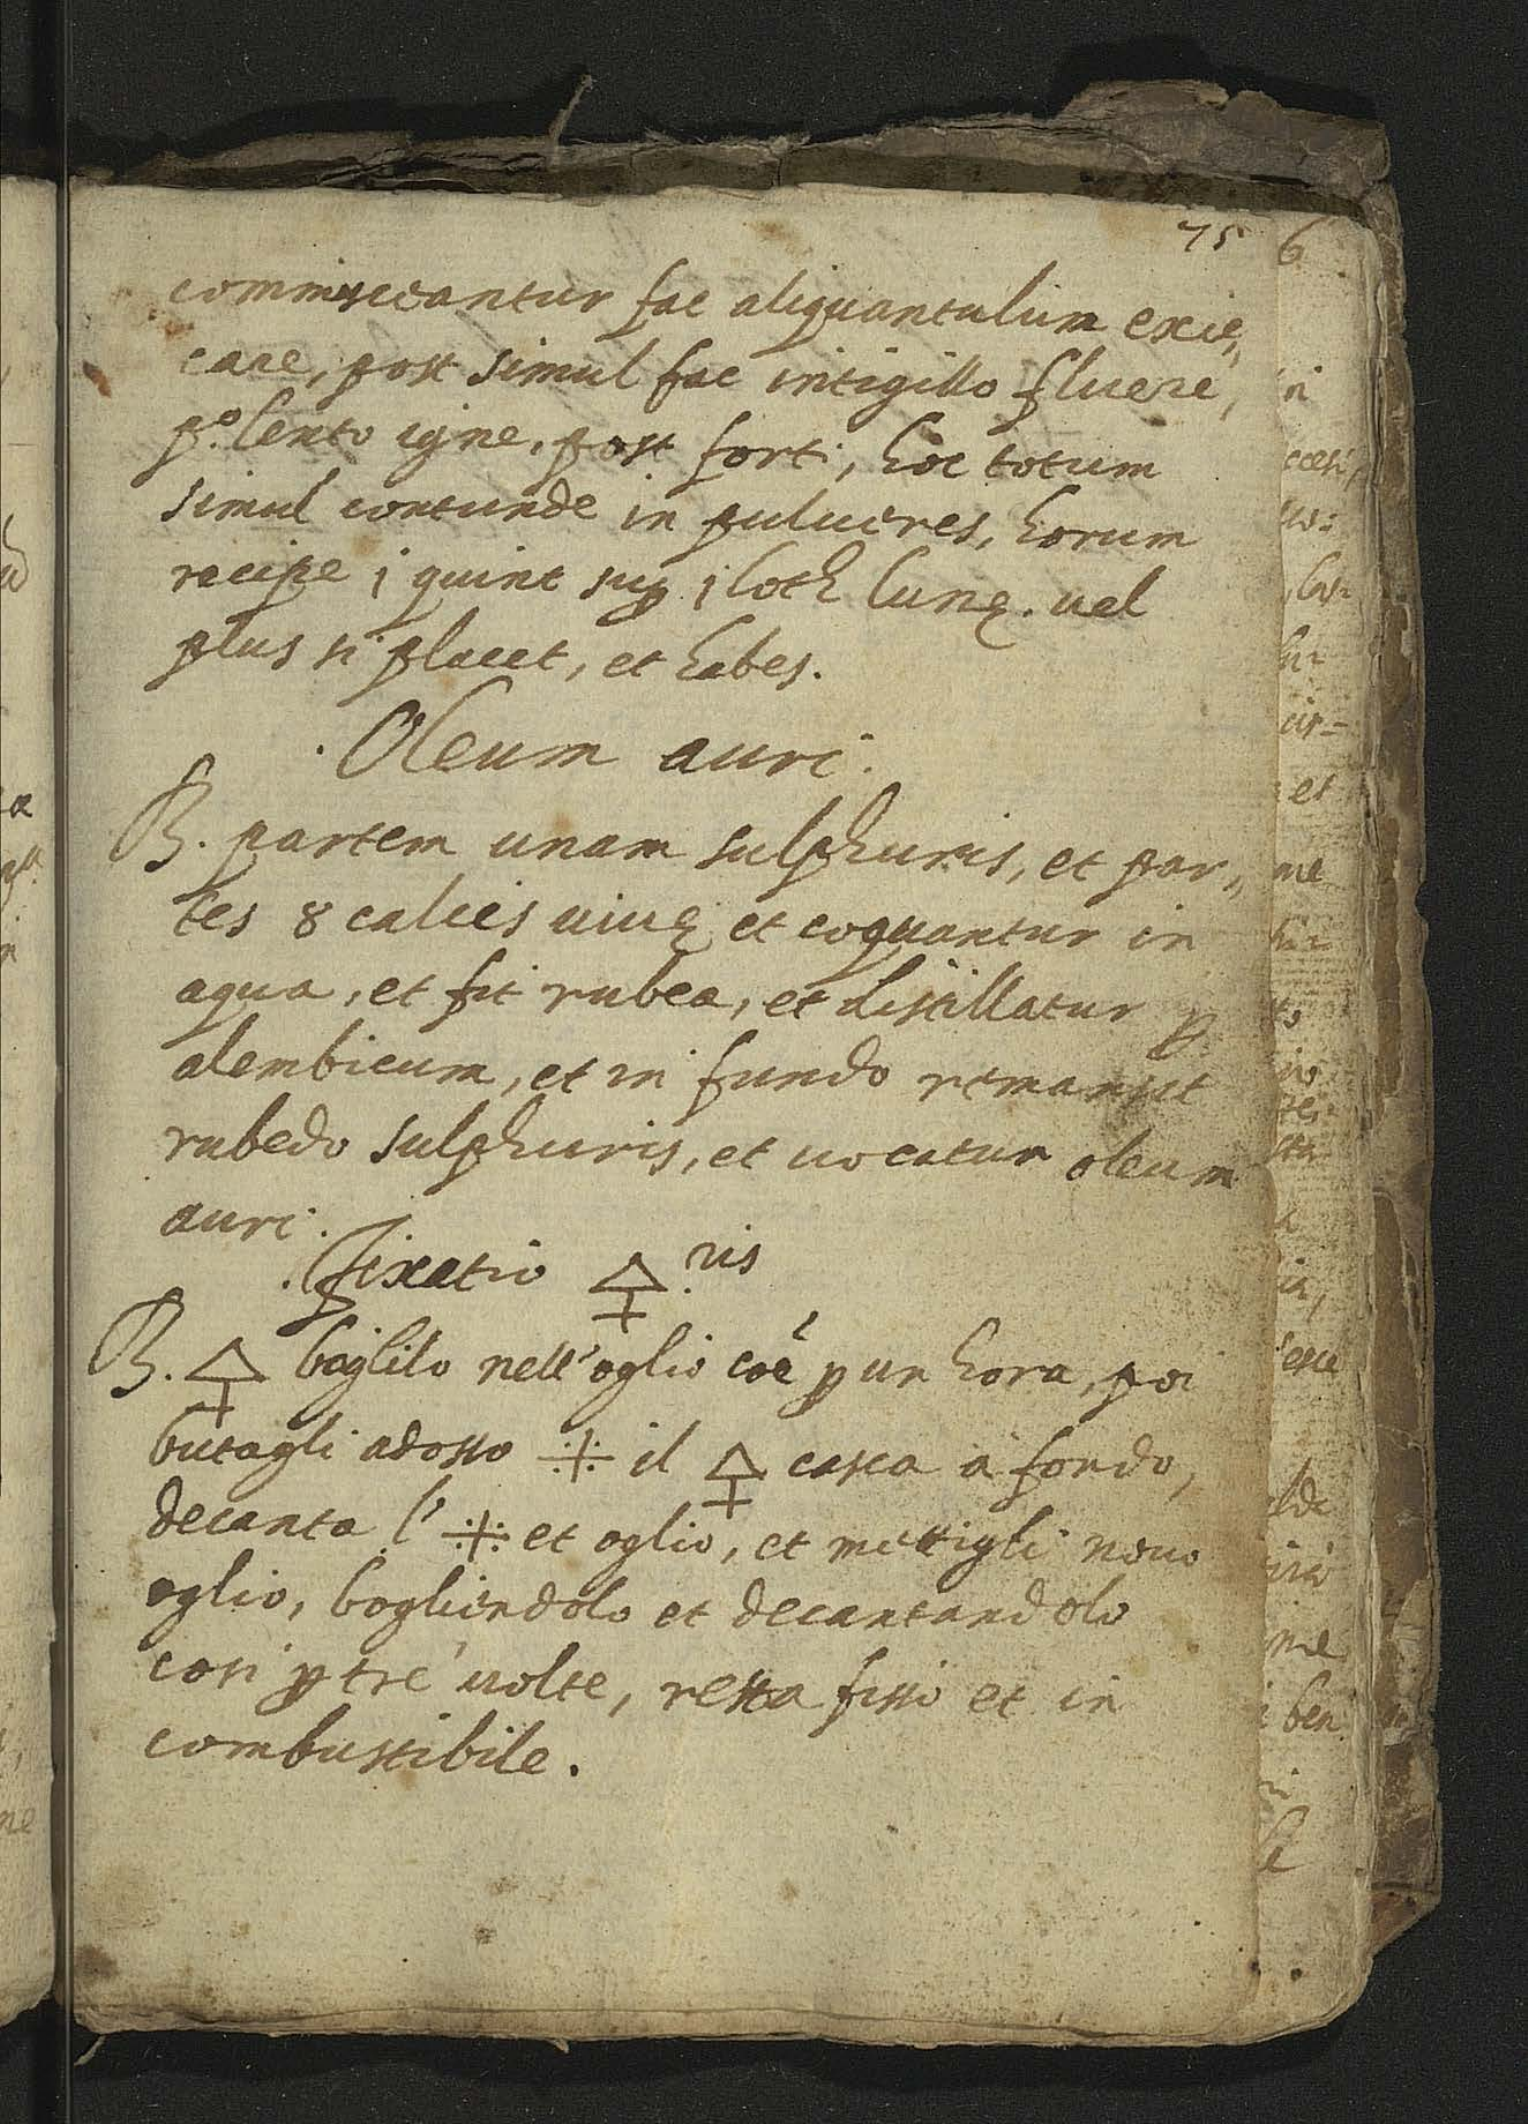 75
6
commisceantur fac aliquantulum exic„
care, post simul fac in tigillo fluere,
p.º lento igne, post forti, hoc totum
simul contunde in pulueres, horum
recipe j quint sup j loth lunę. uel
plus si placet, et habes.
Oleum auri.
℞. partem unam sulphuris, et par„
tes 8 calcis uiuę et coquantur in
aqua, et fit rubea, et distillatur ꝑ
alembicum, et in fundo remanet
rubedo sulphuris, et uocatur oleum
auri.
Fixatio 🜍.ris
℞. 🜍 boglilo nell'oglio coẽ ꝑ un hora, poi
butagli adosso ⁜ il 🜍 casca à fondo,
decanta l' ⁜ et oglio, et mettigli nouo
oglio, bogliendolo et decantandolo
cosi ꝑ tre uolte, resta fisso et in
combustibile.